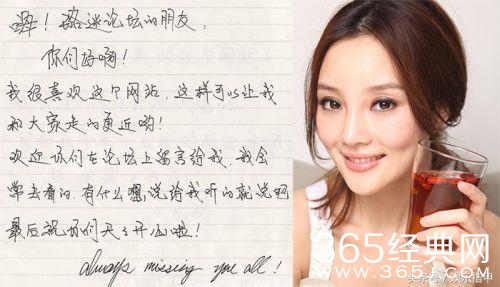 ！璐迷论坛的朋友，
你们好啊！
我很喜欢这个网站，这样可以让我
和大家走的更近哟！
欢迎你们在论坛上留言给我，我会
常去看的，有什么想说给我听的就说吧
最后祝你们天天开心啦！
always missing you all !
365经典网
WWW.365J.COM
头条号